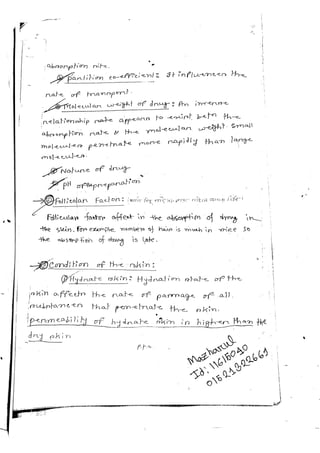 absorption site.
Partition co-efficient: It influences the
rate of transport.
Molecular weight of drug: An inverse
relationship rate appears to exist betn the
absorption rate & the molecular weight. Small
molecules penetrate more rapidly than large
molecules.
Nature of drug
pH of preparation
Follicular Factor:
Follicular factor affect in the absorption of drug in
the skin. For example number of hair is much in mice so
the absorption of drug is late.
Condition of the skin:
Hydrate skin: Hydration state of the
skin affects the rate of passage of all
substances that penetrate the skin.
permeability of hydrate skin is higher than the
dry skin
Mazharul
Id: 11615040
01521322669